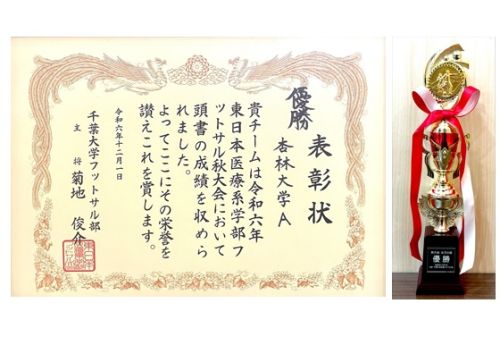 表彰状
優勝
杏林大学A
貴チームは令和六年
東日本医療系学部フ
ットサル秋大会において
頭書の成績を収めら
れました。
よってここにその栄誉を
讃えこれを賞します。
令和六年十二月一日
千葉大学フットサル部
主将 菊地 俊介
優勝